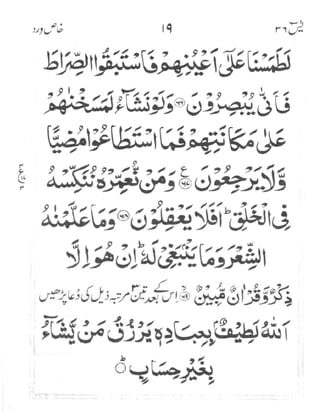 یٰسٓ ۳۶ ۱۹ خاص ورد
لَطَمَسْنَا عَلٰٓی اَعْیُنِهِمْ فَاسْتَبَقُوا الصِّرَاطَ
فَاَنّٰی یُبْصِرُوْنَ ﴿۶۶﴾ وَلَوْ نَشَآءُ لَمَسَخْنٰهُمْ
عَلٰی مَكَانَتِهِمْ فَمَا اسْتَطَاعُوْا مُضِیًّا
وَّلَا یَرْجِعُوْنَ ﴿۶۷﴾ وَمَنْ نُّعَمِّرْهُ نُنَكِّسْهُ
فِی الْخَلْقِ ؕ اَفَلَا یَعْقِلُوْنَ ﴿۶۸﴾ وَمَا عَلَّمْنٰهُ
الشِّعْرَ وَمَا یَنْۢبَغِیْ لَهٗ ؕ اِنْ هُوَ اِلَّا
ذِكْرٌ وَّقُرْاٰنٌ مُّبِیْنٌ ﴿۶۹﴾ اس کے بعد تین ۳ مرتبہ ذیل کی دُعا پڑھیں
اَللّٰهُ لَطِیْفٌۢ بِعِبَادِهٖ یَرْزُقُ مَنْ یَّشَآءُ
بِغَیْرِ حِسَابٍ